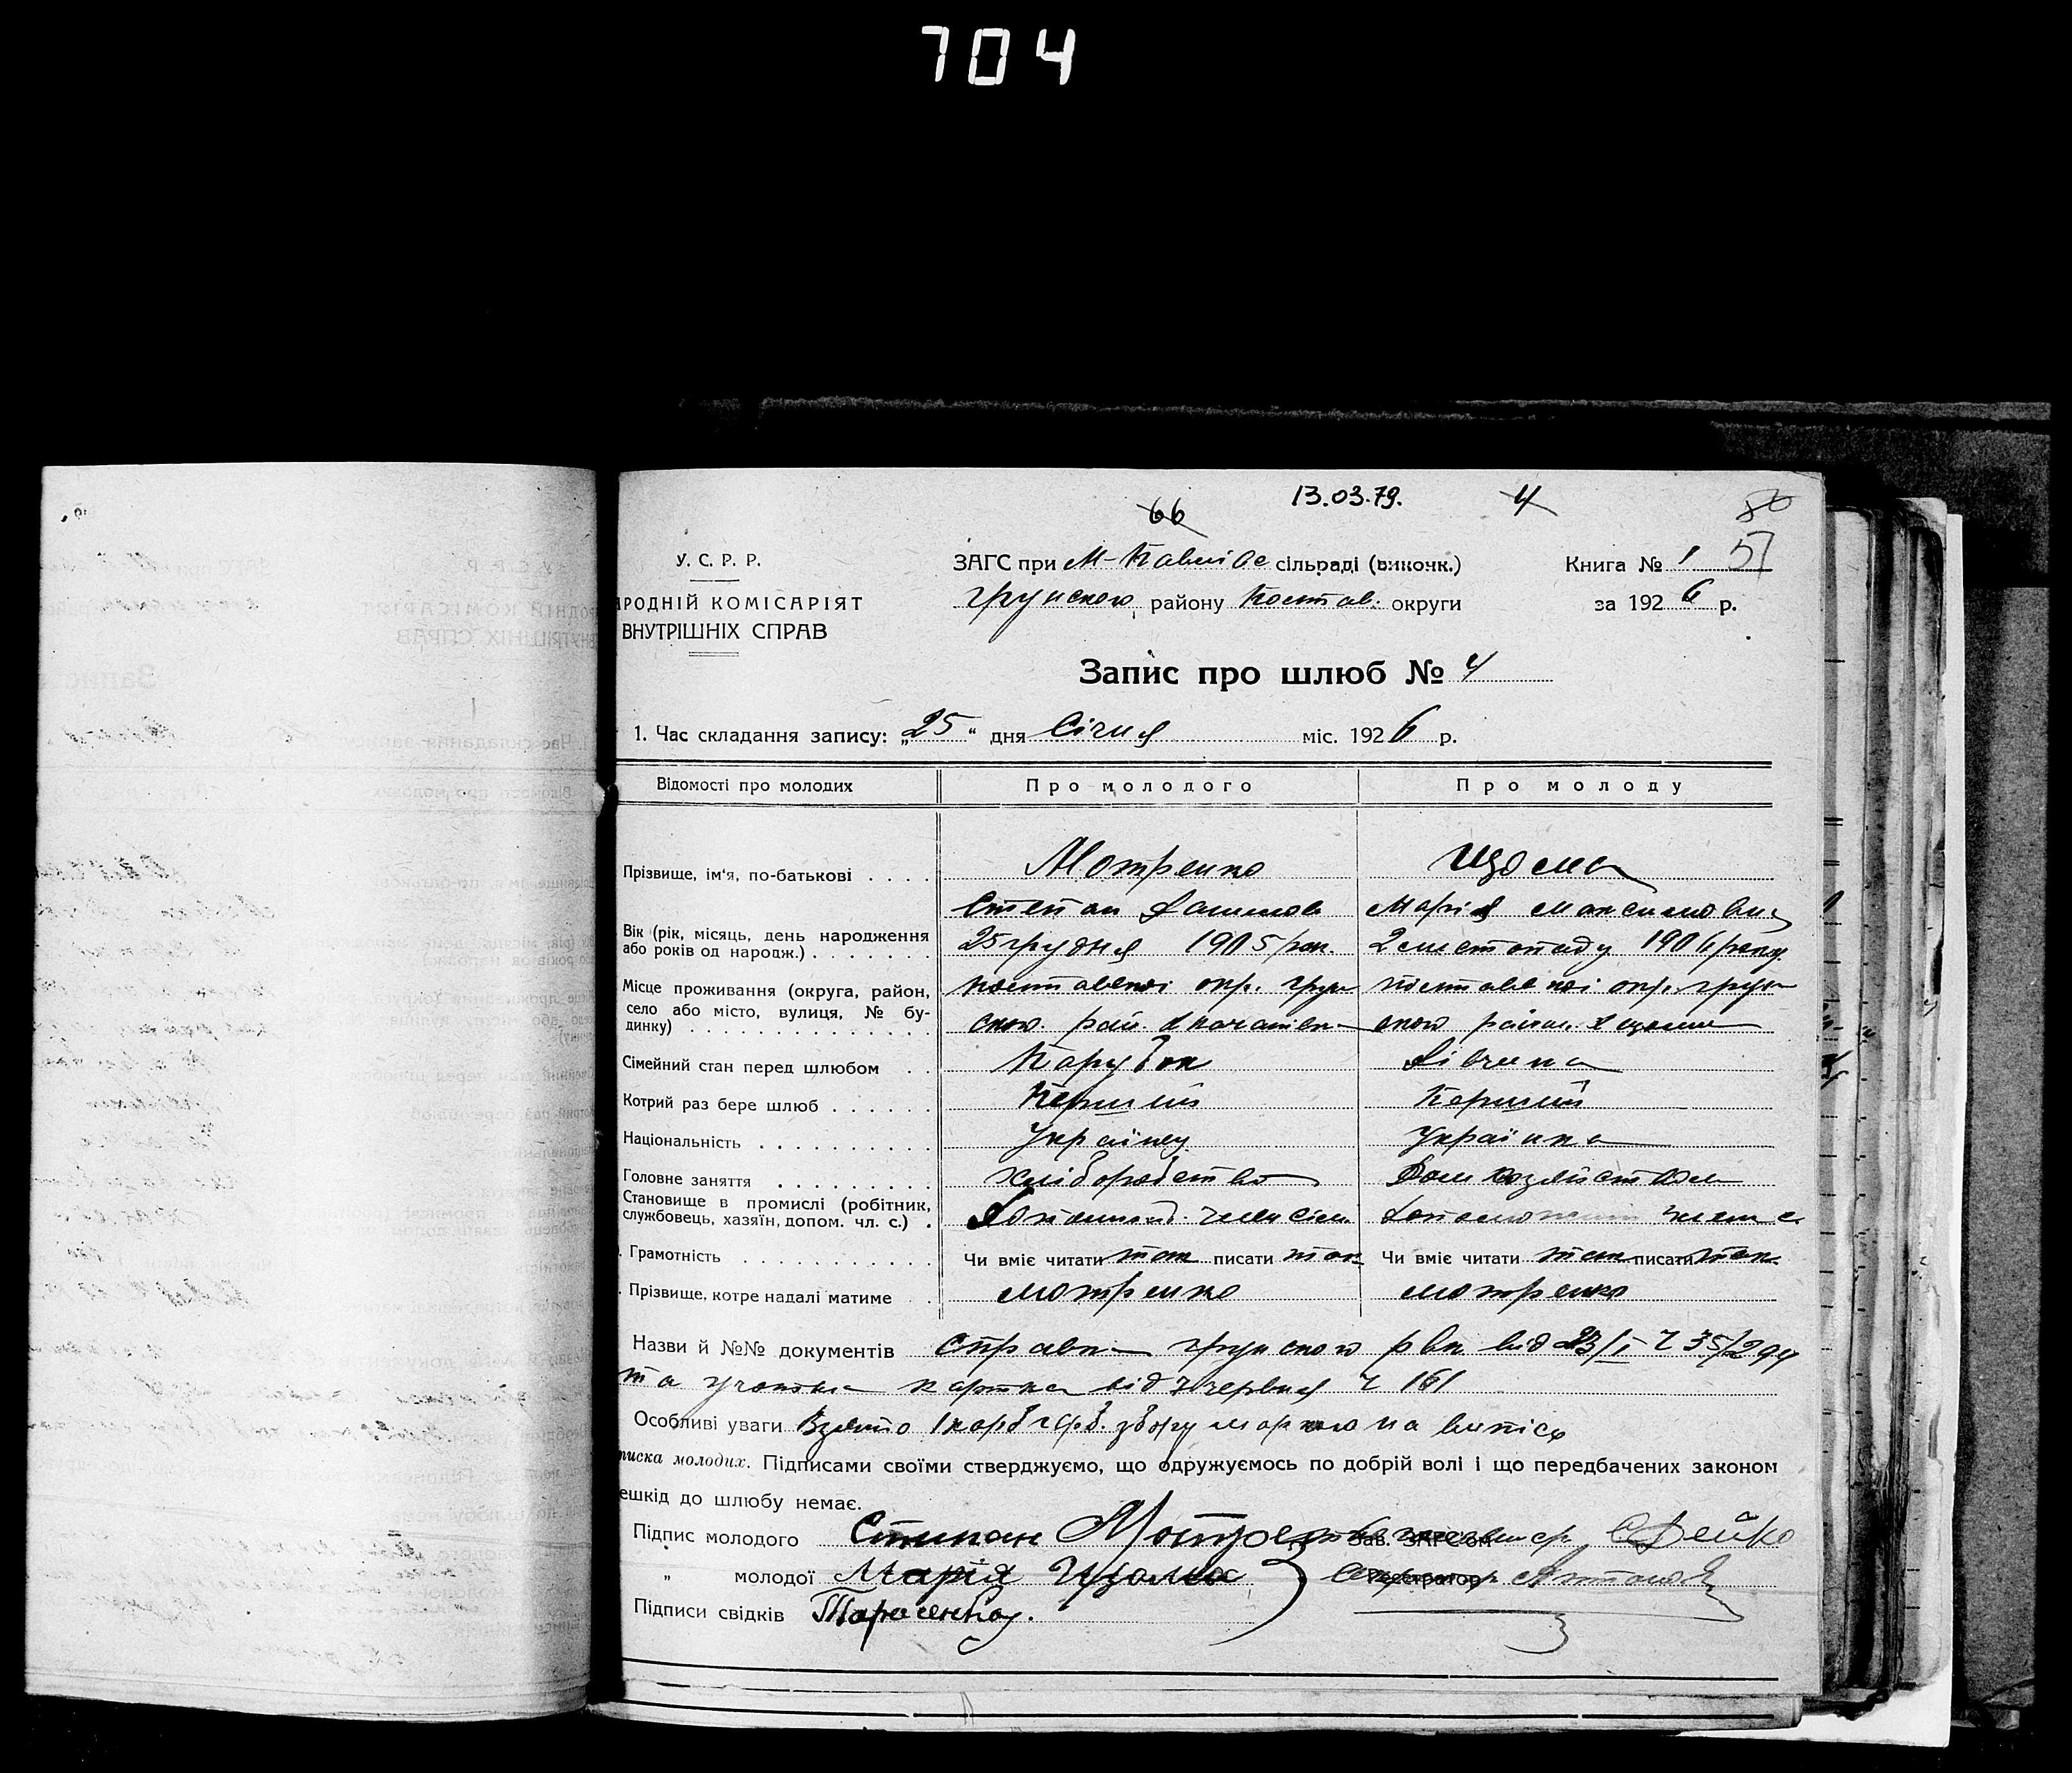 704
13.03.79.
66
4
80
57
У. С. Р. Р.
РОДНІЙ КОМІСАРІЯТ
ВНУТРІШНІХ СПРАВ
ЗАГС при М-Павлівс сільраді (виконк.)
Грунского району Полтав. округи
Книга № 1
за 1926 р.
Запис про шлюб № 4
1. Час складання запису: „25“ дня Січня міс. 1926 р.
Відомості про молодих
Про молодого
Про молоду
Прізвище, ім'я, по-батькові . . . . Мотренко
Степан
Марія Максимовн
Вік (рік, місяць, день народження або років од народж.) . . . . . . . 25 грудня 1905 рок. 2 листопаду 1906 року
Місце проживання (округа, район, село або місто, вулиця, № будинку) . . . . . . . . . . . . Полтавскої окр. Грун Полтавскої окр. Грун
Сімейний стан перед шлюбом . . Парубок Дівчина
Котрий раз бере шлюб . . . . . . Перший Перший
Національність . . . . . . . . . . Українец Українка
Головне заняття . . . . . . . . . хліборобство
Становище в промислі (робітник, службовець, хазяїн, допом. чл. с.) . Допоможн. член сім.
. Грамотність . . . . . . . . . . . Чи вміє читати так писати так Чи вміє читати так писати так
. Прізвище, котре надалі матиме . Мотренко Мотренко
Назви й №№ документів Справка Грунского рвк від 23/I Ч 35/294
та учотна картка від 7 червня Ч 161
Особливі уваги Взято 1 карб гарб. збору маркою на випісь
писка молодих. Підписами своїми стверджуємо, що одружуємось по добрій волі і що передбачених законом
ешкід до шлюбу немає.
Підпис молодого Степан Мотренко Зав. ЗАГС'ом Дейко
„ молодої Марія Реєстратор
Підписи свідків